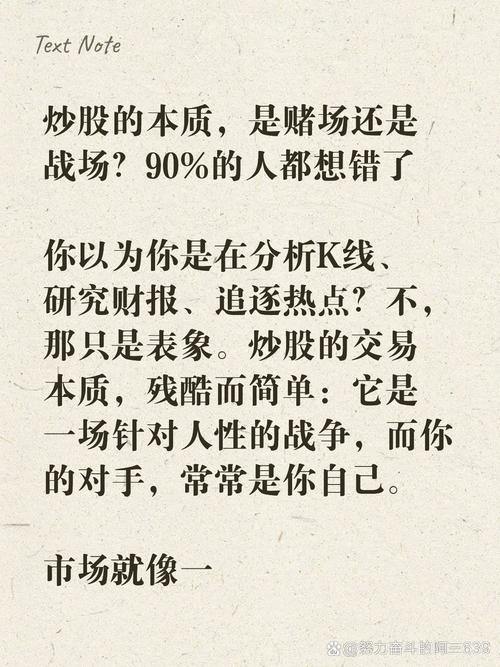 Text Note
炒股的本质，是赌场还是
战场？90%的人都想错了
你以为你是在分析K线、
研究财报、追逐热点？不，
那只是表象。炒股的交易
本质，残酷而简单：它是
一场针对人性的战争，而你
的对手，常常是你自己。
市场就像一